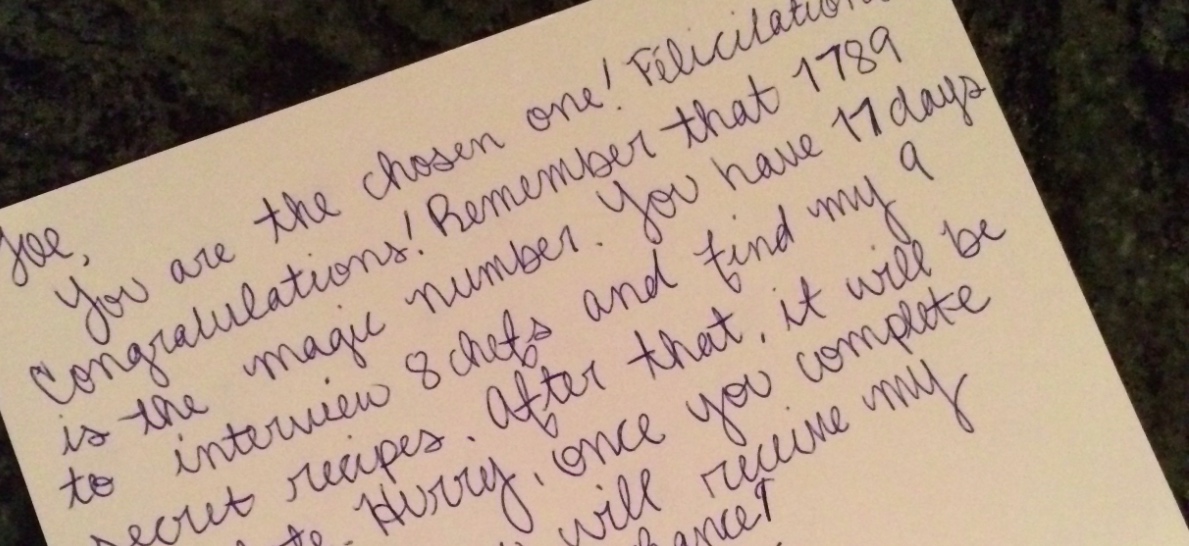 Joe,
You are the chosen one! Félicitation
Congratulations! Remember that 1789
is the magic number. You have 17 days
to interview 8 chefs and find my 9
secret recipes. After that, it will be
Hurry, once you complete
will receive my